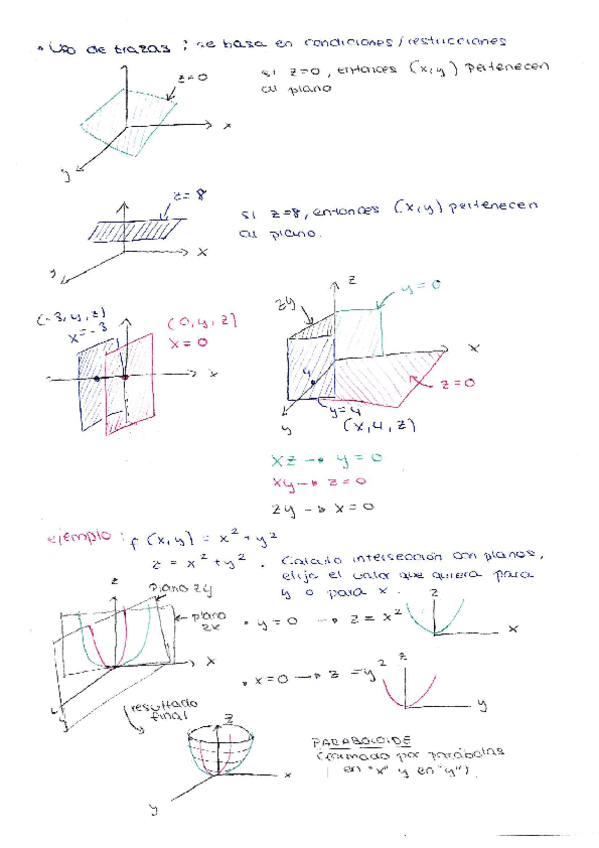 • Uso de trazas : se basa en condiciones/restricciones
z=0
si z=0, entonces (x,y) pertenecen
al plano
x
y
z=8
si z=8, entonces (x,y) pertenecen
al plano.
x
y
(-3,y,z)
x=-3
(0,y,z)
x=0
x
z
zy
y=0
x
4
z=0
y=4
y
(x,4,z)
xz → y=0
xy → z=0
zy → x=0
ejemplo : f(x,y) = x² + y²
z = x² + y² . Calculo intersección con planos,
elijo el valor que quiera para
y o para x.
z
Plano zy
plano
zx
x
y
• y=0 → z = x²
z
x
• x=0 → z = y²
z
y
resultado
final
z
x
y
PARABOLOIDE
(formado por parábolas
en "x" y en "y")